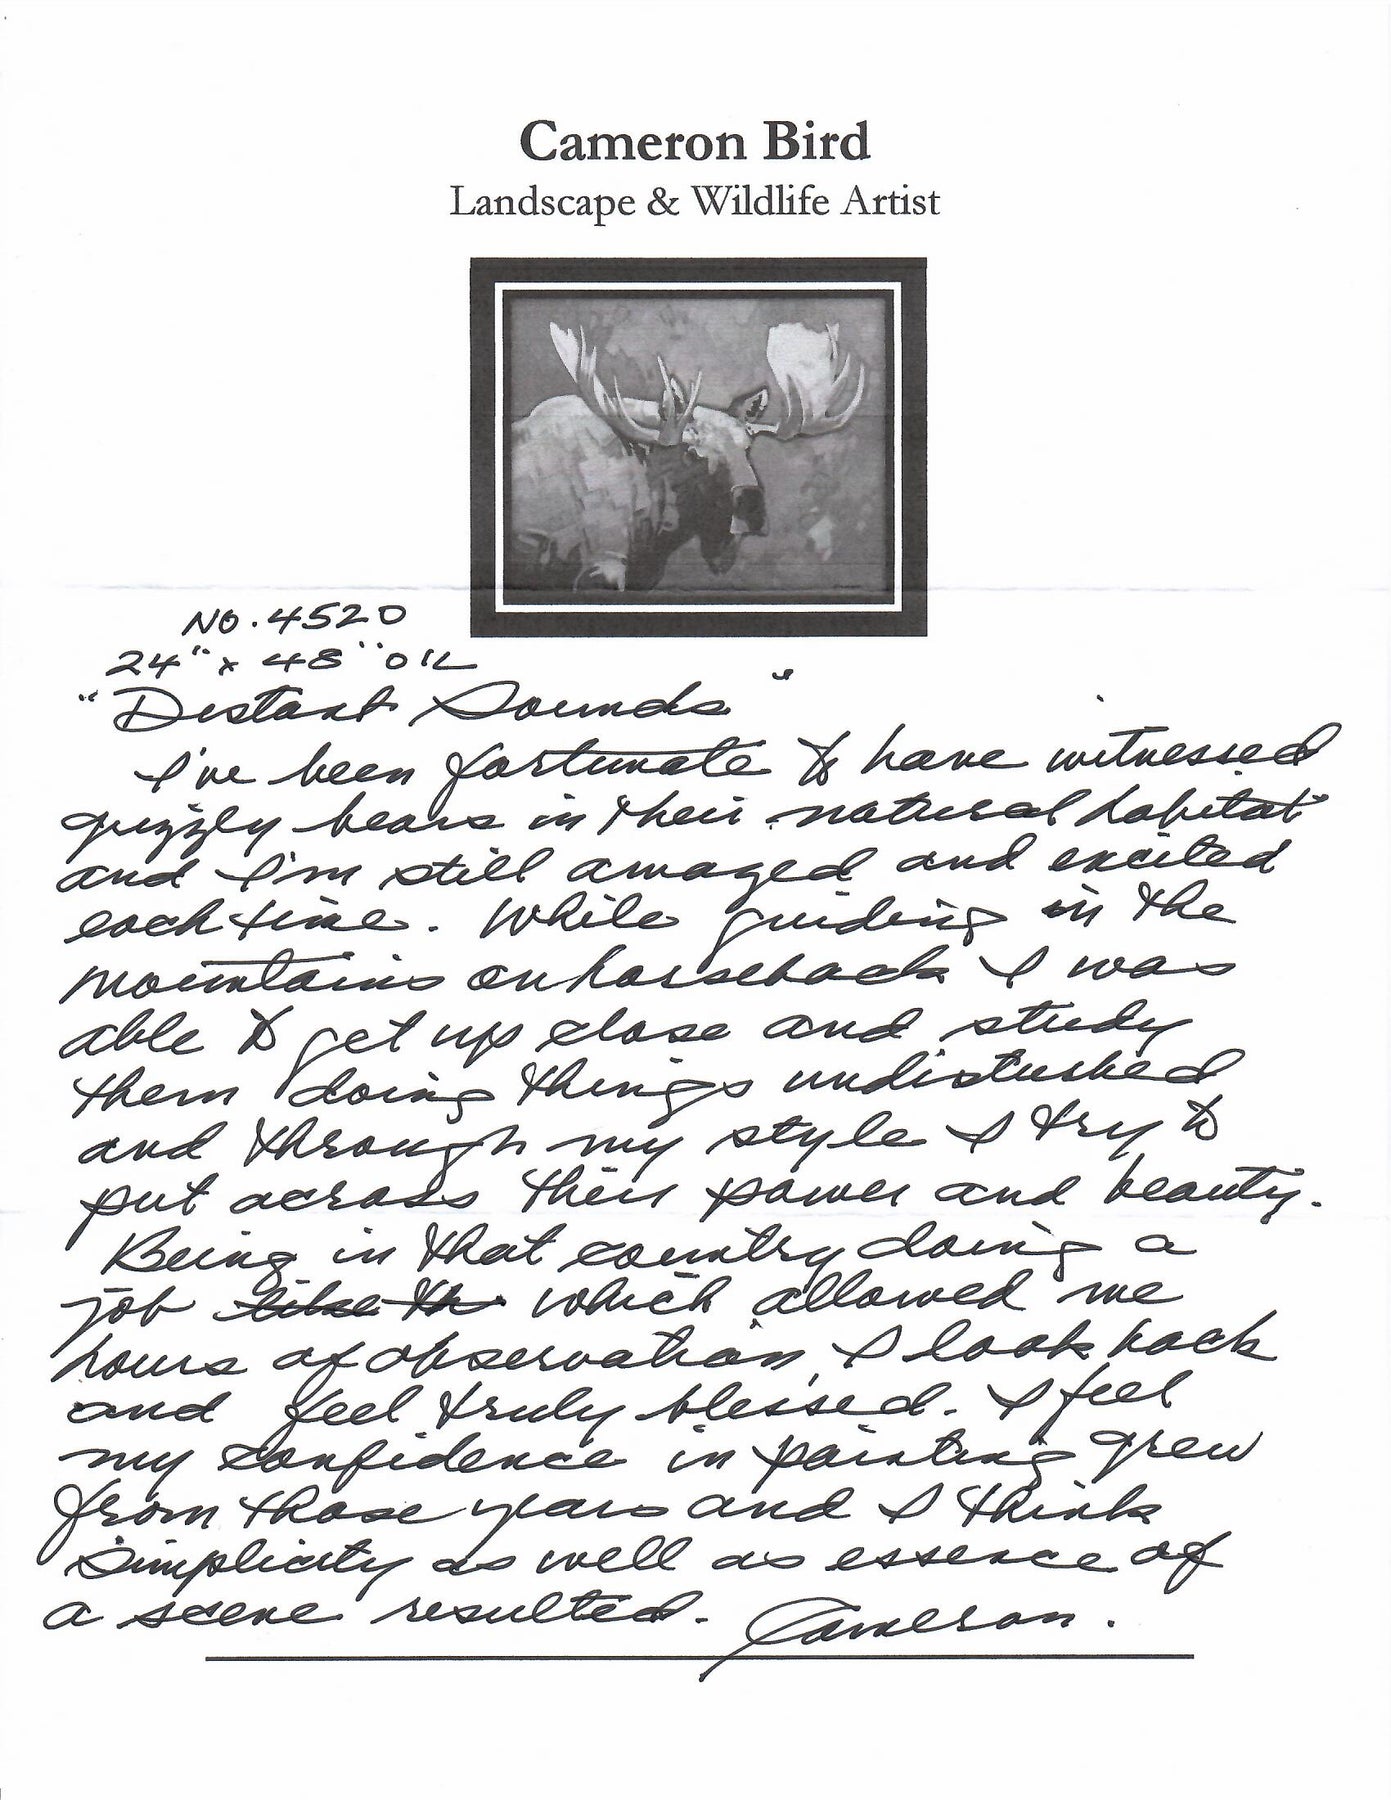 Cameron Bird
Landscape & Wildlife Artist
No. 4520
24" x 48" OIL
"Distant Sounds"
I've been fortunate to have witnessed
grizzly bears in their natural habitat
and I'm still amazed and excited
each time. While guiding in the
mountains on horseback I was
able to get up close and study
them doing things undisturbed
and through my style I try to
put across their power and beauty.
Being in that country doing a
job like th which allowed me
hours of observation, I look back
and feel truly blessed. I feel
my confidence in painting grew
from those years and I think
simplicity as well as essence of
a scene resulted. Cameron.